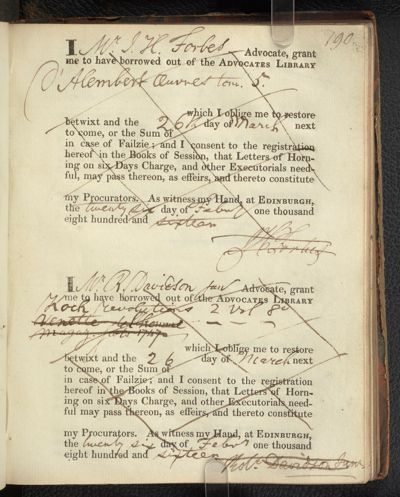 190
I Mr. J. H. Forbes Advocate, grant
me to have borrowed out of the ADVOCATES LIBRARY
D'Alembert Œuvres tom. 5.
which I oblige me to restore
betwixt and the 26th day of March next
to come, or the Sum of
in case of Failzie; and I consent to the registration
hereof in the Books of Session, that Letters of Horn-
ing on six Days Charge, and other Executorials need-
ful, may pass thereon, as effeirs, and thereto constitute
my Procurators. As witness my Hand, at EDINBURGH,
the twenty six day of Febry one thousand
eight hundred and sixteen
I Mr. R. Davidson junr Advocate, grant
me to have borrowed out of the ADVOCATES LIBRARY
Koch Revolutions 2 Vol 80
Venette
1747
which I oblige me to restore
betwixt and the 26 day of March next
to come, or the Sum of
in case of Failzie; and I consent to the registration
hereof in the Books of Session, that Letters of Horn-
ing on six Days Charge, and other Executorials need-
ful, may pass thereon, as effeirs, and thereto constitute
my Procurators. As witness my Hand, at EDINBURGH,
the twenty six day of Febry one thousand
eight hundred and sixteen
Robt. Davidson Junr